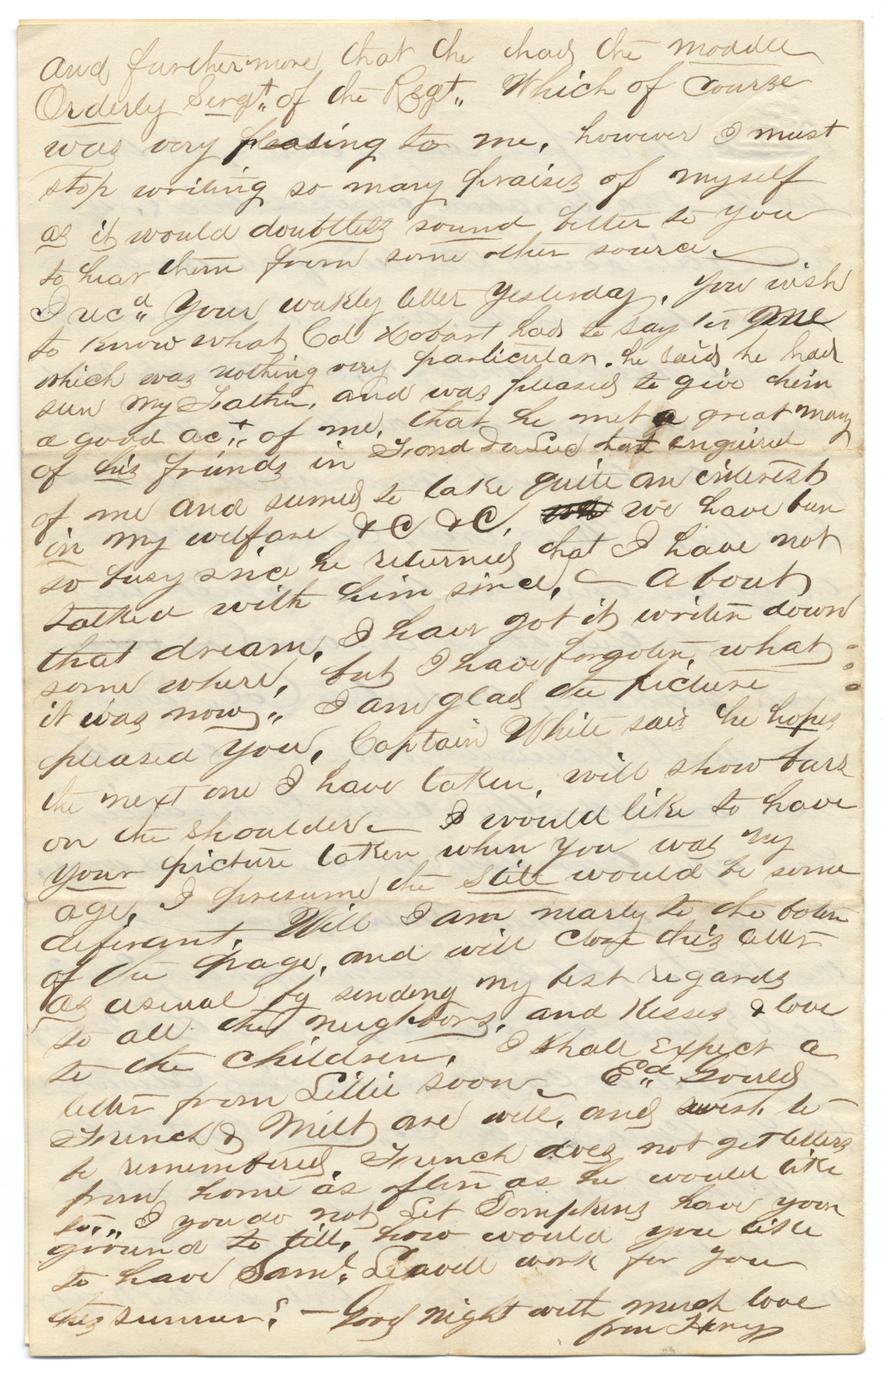 and furthermore that he had the moddle
Orderly Sergt" of the Regt" Which of course
was very pleasing to me, however I must
stop writing so many praises of myself
as it would doubtless sound better to you
to hear them from some other source.
I recd" Your wekly letter Yesterday, You wish
to know what Col Hobart had to say to me
which was nothing very particular. he said he had
seen my Father, and was pleased to give him
a good act" of me, that he met a great many
of his friends in Frond Du Luc that enquired
of me and seemed to take quite an interest
in my welfare &C &C, we have been
so busy since he returned that I have not
talked with him since, — About
that dream, I have got it writen down
some where, but I have forgoten what
it was now" I am glad the picture
pleased you, Captain White said he hopes
the next one I have taken, will show bars
on the shoulder — I would like to have
your picture taken when you was my
age, I presume the Stile would be some
diferant. Will I am nearly to the botom
of the page, and will close this letter
as usual by sending my best regards
to all the neighbors, and Kisses & love
to the children, I shall Expect a
letter from Lillie soon Ed" Gould
French & Milt are well, and wish to
be remembered, French does not get letters
from home as often as he would like
to," I you do not Let Tompkins have your
ground to till, how would you like
to have Saml Leavell work for you
this summer? — Good Night with much love
from Henry